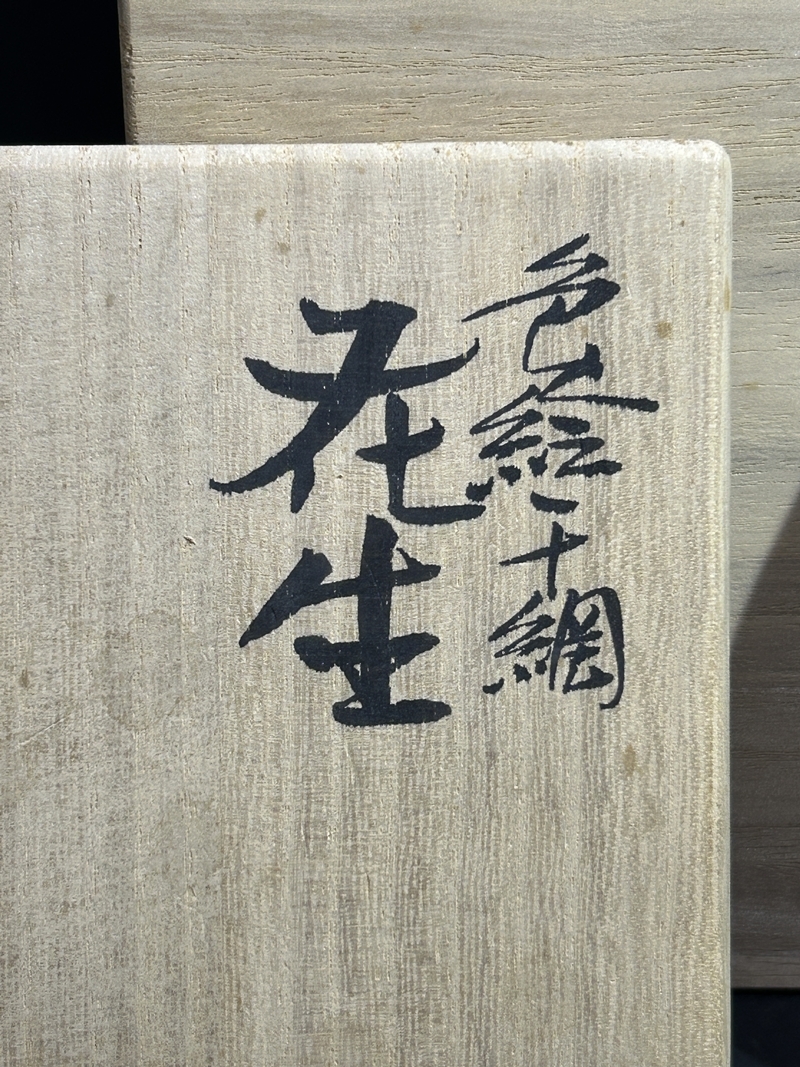 色絵干網
花生